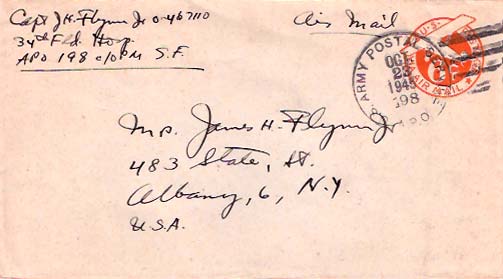 Capt J. H. Flynn Jr O-467110
34th Fld. Hosp.
APO 198 c/o PM S.F.
Air Mail
U.S. ARMY POSTAL SERVICE
OCT
22
1945
198
A.P.O.
U.S.
6¢
AIR MAIL
Mrs. James H. Flynn Jr.
483 State, St.
Albany, 6, N.Y.
U.S.A.